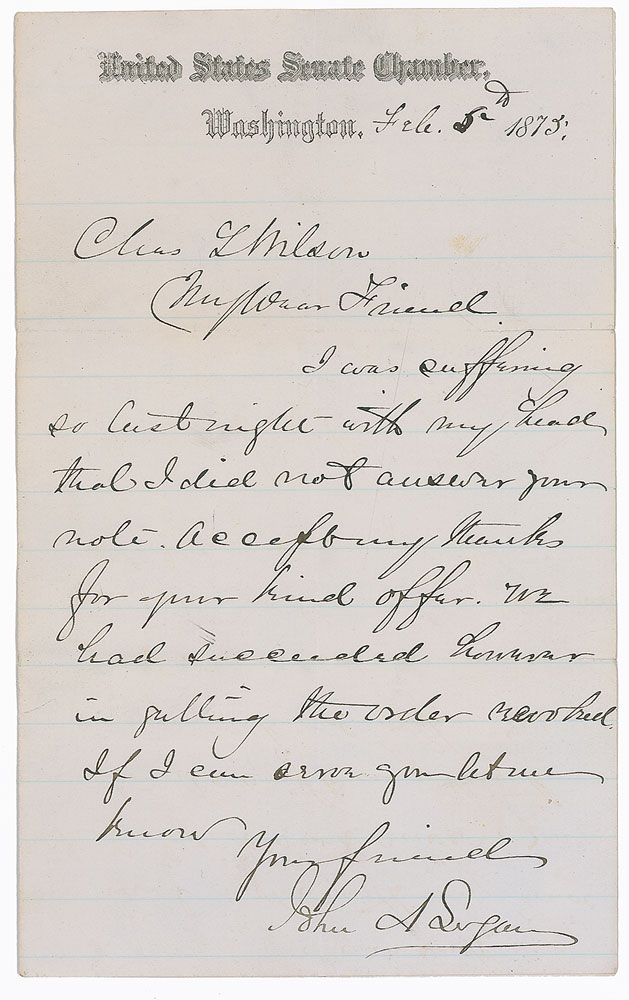 United States Senate Chamber,
Washington, Feb. 5th 1875.
Chas L Wilson
My Dear Friend
I was suffering
so last night with my head
that I did not answer your
note. Accept my thanks
for your kind offer. We
had succeeded however
in getting the order revoked.
If I can serve you let me
know
Your friend
John A Logan